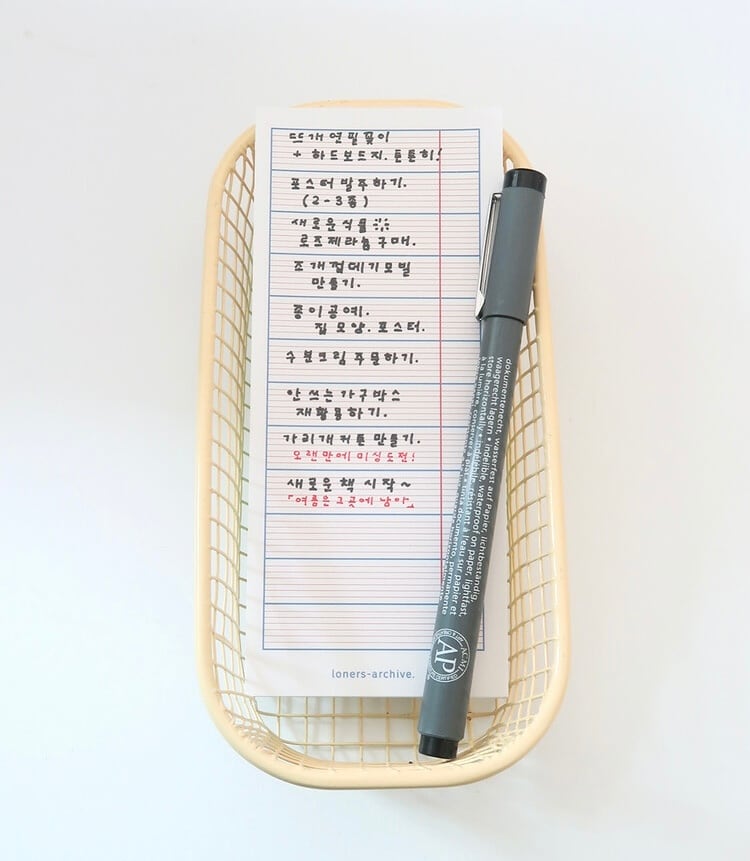 뜨개연필꽂이
+ 하드보드지. 튼튼히!
포스터 발주하기.
(2-3종)
새로운식물
로즈제라늄 구매.
조개껍데기모빌
만들기.
종이공예.
집모양. 포스터.
수분크림 주문하기.
안 쓰는 가구박스
재활용하기.
가리개커튼 만들기.
오랜만에 미싱도전!
새로운 책 시작~
「여름은 그곳에 남아」
loners-archive.
dokumentenecht, wasserfest auf Papier, lichtbeständig,
waagerecht lagern • indelible, waterproof on paper, lightfast,
store horizontally • indélébile, résistant à l'eau sur papier et
à la lumière, conserver à plat
documento, permanente
AP
CERTIFIED